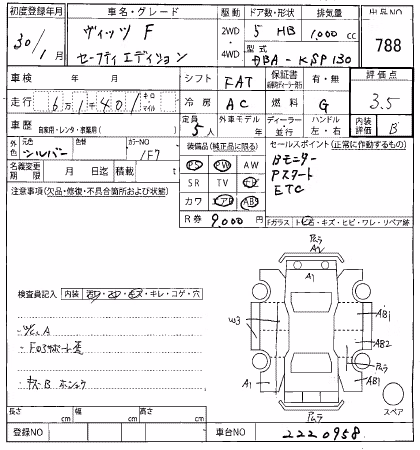 初度登録年月 車名・グレード 駆動 ドア数・形状 排気量 出品NO
30/1月 ヴィッツ F 2WD・4WD 5 HB 1,000 cc 788
セーフティエディション 型式 DBA-KSP130
車検 年 月 シフト FAT 保証書 有・無 評価点
走行 6万1千401 キロ マイル 冷房 AC 燃料 G 3.5
車歴 自家用・レンタ・教習用( ) 定員 5人 外車モデル年 ディーラー 並行 ハンドル 左・右 内装評価 B
外色 元色 シルバー 色替 カラーNO 1F7 装備品(純正品に限る) セールスポイント(正常に作動するもの)
名義変更期限 月 日 積載 t PS PW AW Bモニター
注意事項(欠品・修復・不具合箇所および状態) SR TV Pスタート
カワ エアB ABS ETC
R券 9,000円 Fガラス トビ石・キズ・ヒビ・ワレ・リペア跡
検査員記入 内装 キレ・コゲ・穴
A
A1
W3
AB1
AB2
A1
AB1
スペア
長さ cm 幅 cm 高さ cm
登録NO 車台NO 2220958